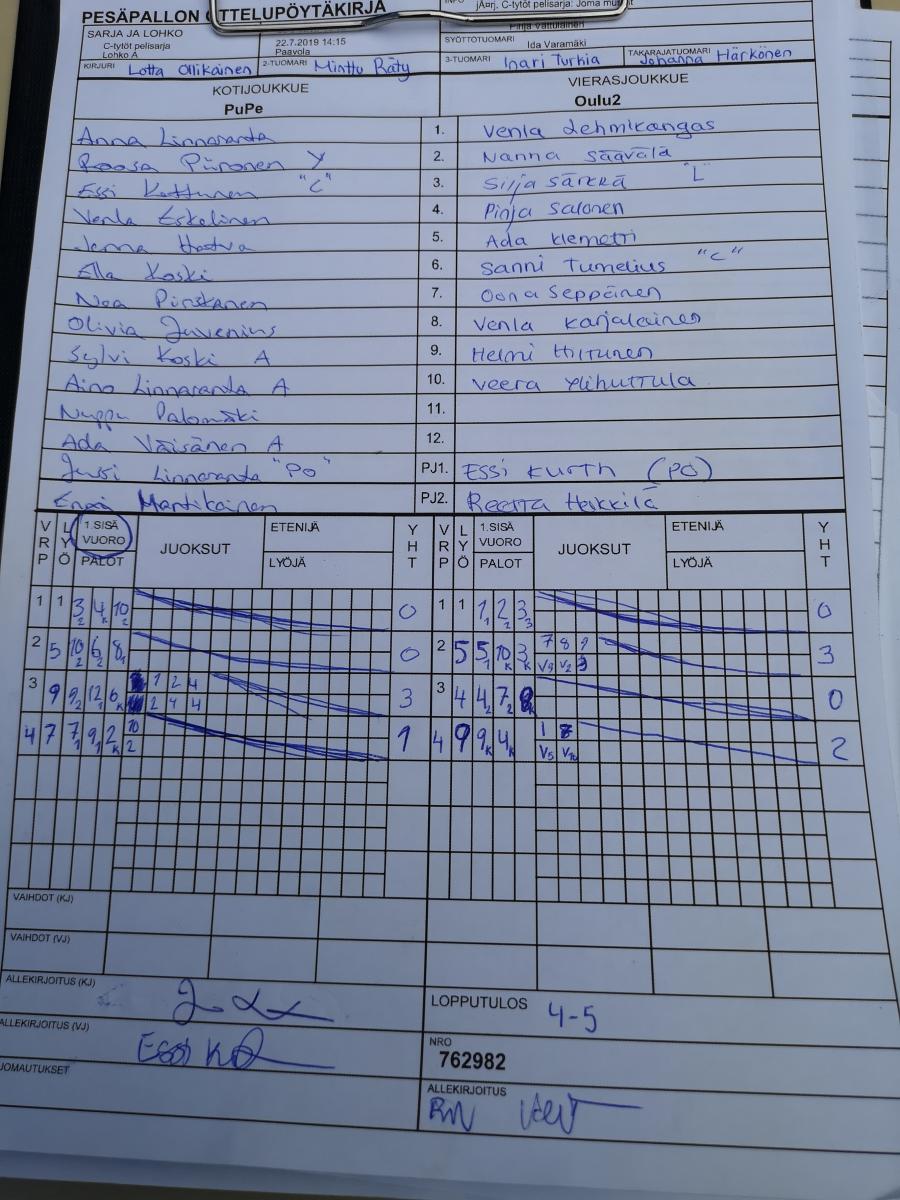 PESÄPALLON OTTELUPÖYTÄKIRJA
C-tytöt pelisarja: Joma
SARJA JA LOHKO
C-tytöt pelisarja
Lohko A
22.7.2019 14:15
Paavola
Pirja Vattulainen
SYÖTTÖTUOMARI
Ida Varamäki
KIRJURI Lotta Ollikainen
2-TUOMARI Minttu Räty
3-TUOMARI Inari Turkia
TAKARAJATUOMARI Johanna Härkönen
KOTIJOUKKUE
PuPe
VIERASJOUKKUE
Oulu2
Anna Linnaranta 1. Venla Lehmikangas
Roosa Piironen Y 2. Nanna Säävälä
Essi Karttunen "C" 3. Silja Särkkä "L"
Venla Eskelinen 4. Pinja Salonen
Jenna Hostva 5. Ada Klemetti
Ella Koski 6. Sanni Tumelius "C"
Nea Pirskanen 7. Oona Seppänen
Olivia Juvenius 8. Venla Karjalainen
Sylvi Koski A 9. Helmi Hiltunen
Aino Linnaranta A 10. Veera Ylihuttula
Nuppu Palomäki 11.
Ada Väisänen A 12.
Jussi Linnaranta "PO" PJ1. Essi Kurth (PO)
Enni Mantikainen PJ2. Reetta Heikkilä
VRP LYÖ 1.SISÄ VUORO PALOT JUOKSUT ETENIJÄ LYÖJÄ YHT VRP LYÖ 1.SISÄ VUORO PALOT JUOKSUT ETENIJÄ LYÖJÄ YHT
1 1 3 2 4 K 10 2 0 1 1 1 1 2 2 3 3 0
2 5 10 2 6 2 8 1 0 2 5 5 1 10 K 3 K 7 8 9 3
3 9 9 2 12 1 6 K 1 2 4 2 4 4 3 3 4 4 2 7 2 0
4 7 7 1 9 1 2 K 10 2 1 4 9 9 K 4 K 1 8 V5 V10 2
VAIHDOT (KJ)
VAIHDOT (VJ)
ALLEKIRJOITUS (KJ)
LOPPUTULOS 4-5
ALLEKIRJOITUS (VJ) Essi
NRO
762982
ALLEKIRJOITUS